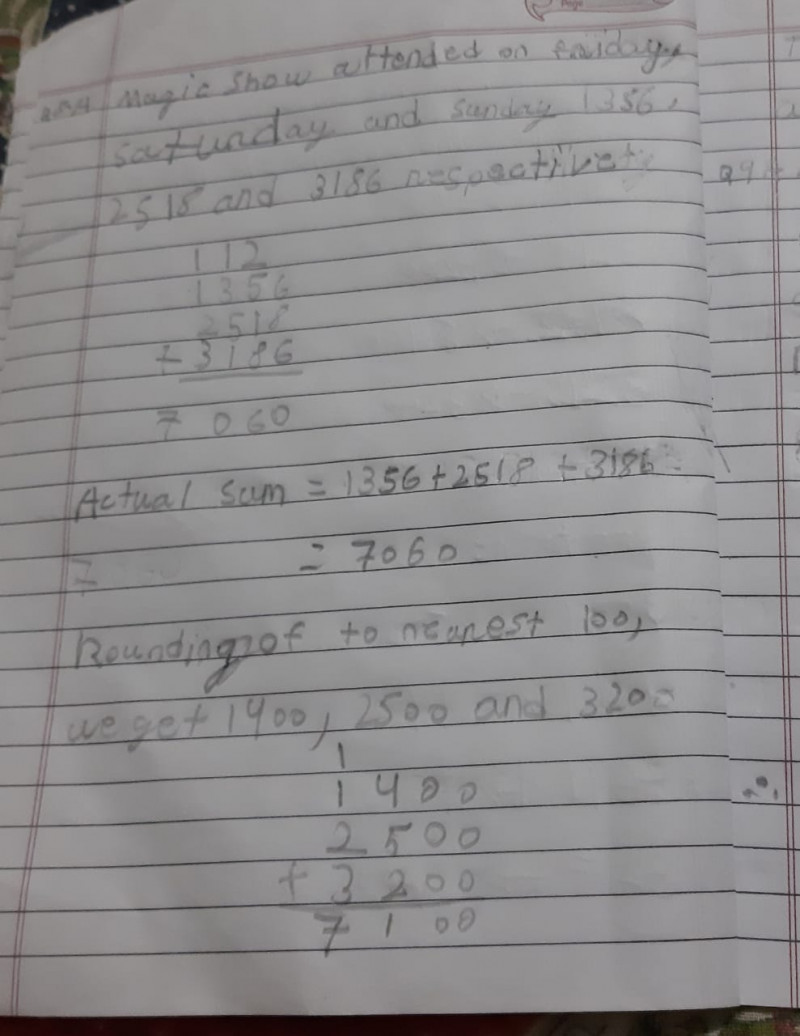 Magic Show attended on Friday,
Saturday and Sunday 1356,
2518 and 3186 respectivet
112
1356
2518
+ 3186
7060
Actual Sum = 1356+2518 +3186
7
= 7060
Rounding of to nearest 100,
we get 1400, 2500 and 3200
1
1400
2500
+ 3200
7100